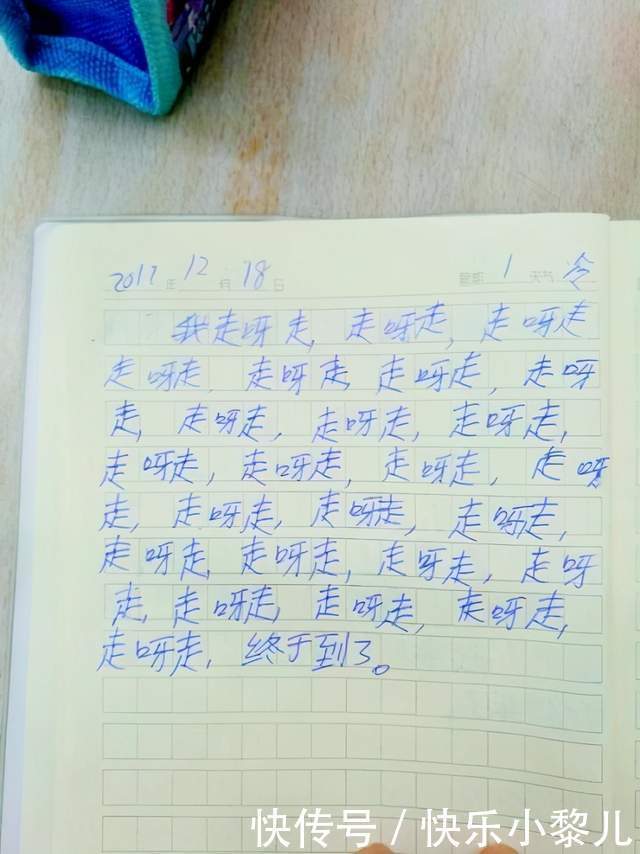 2017年12月18日 星期1 天气冷
我走呀走,走呀走,走呀走
走呀走,走呀走,走呀走,走呀
走,走呀走,走呀走,走呀走,
走呀走,走呀走,走呀走,走呀
走,走呀走,走呀走,走呀走,
走呀走,走呀走,走呀走,走呀
走,走呀走,走呀走,走呀走,
走呀走,终于到了。
快传号 / 快乐小黎儿